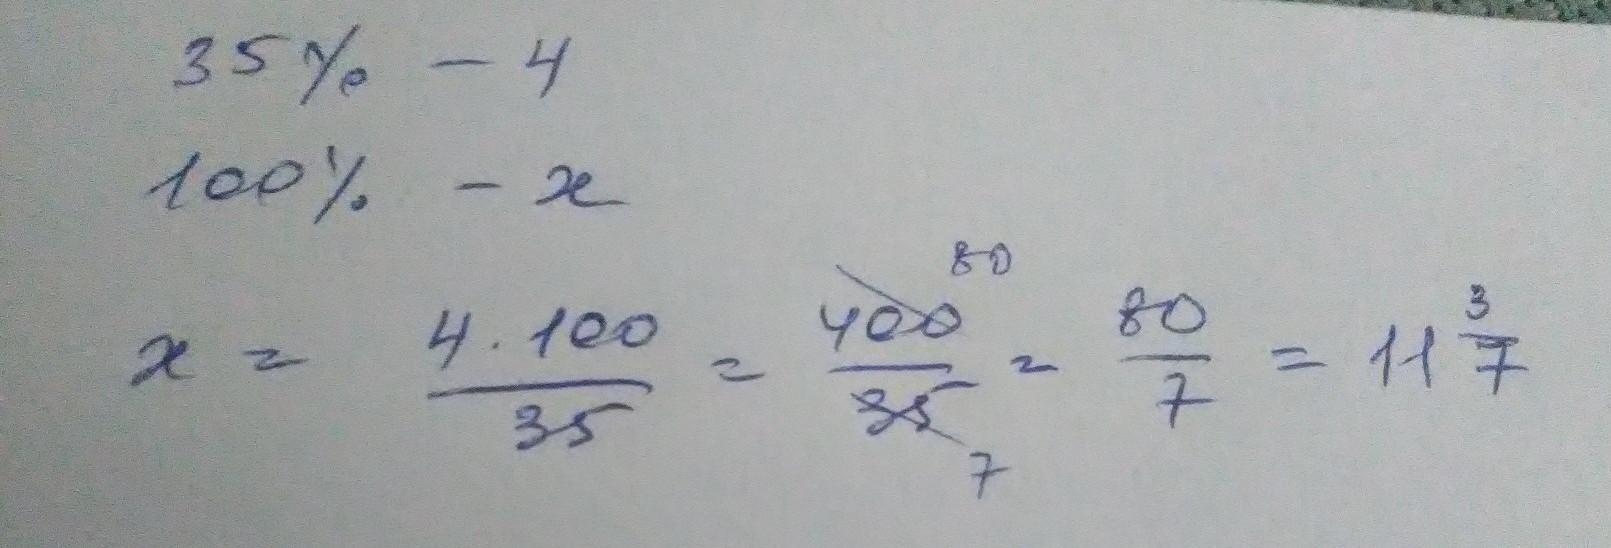 35% - 4
100% - x
x = 4 · 100 / 35 = 400 80 / 35 7 = 80 / 7 = 11 3/7